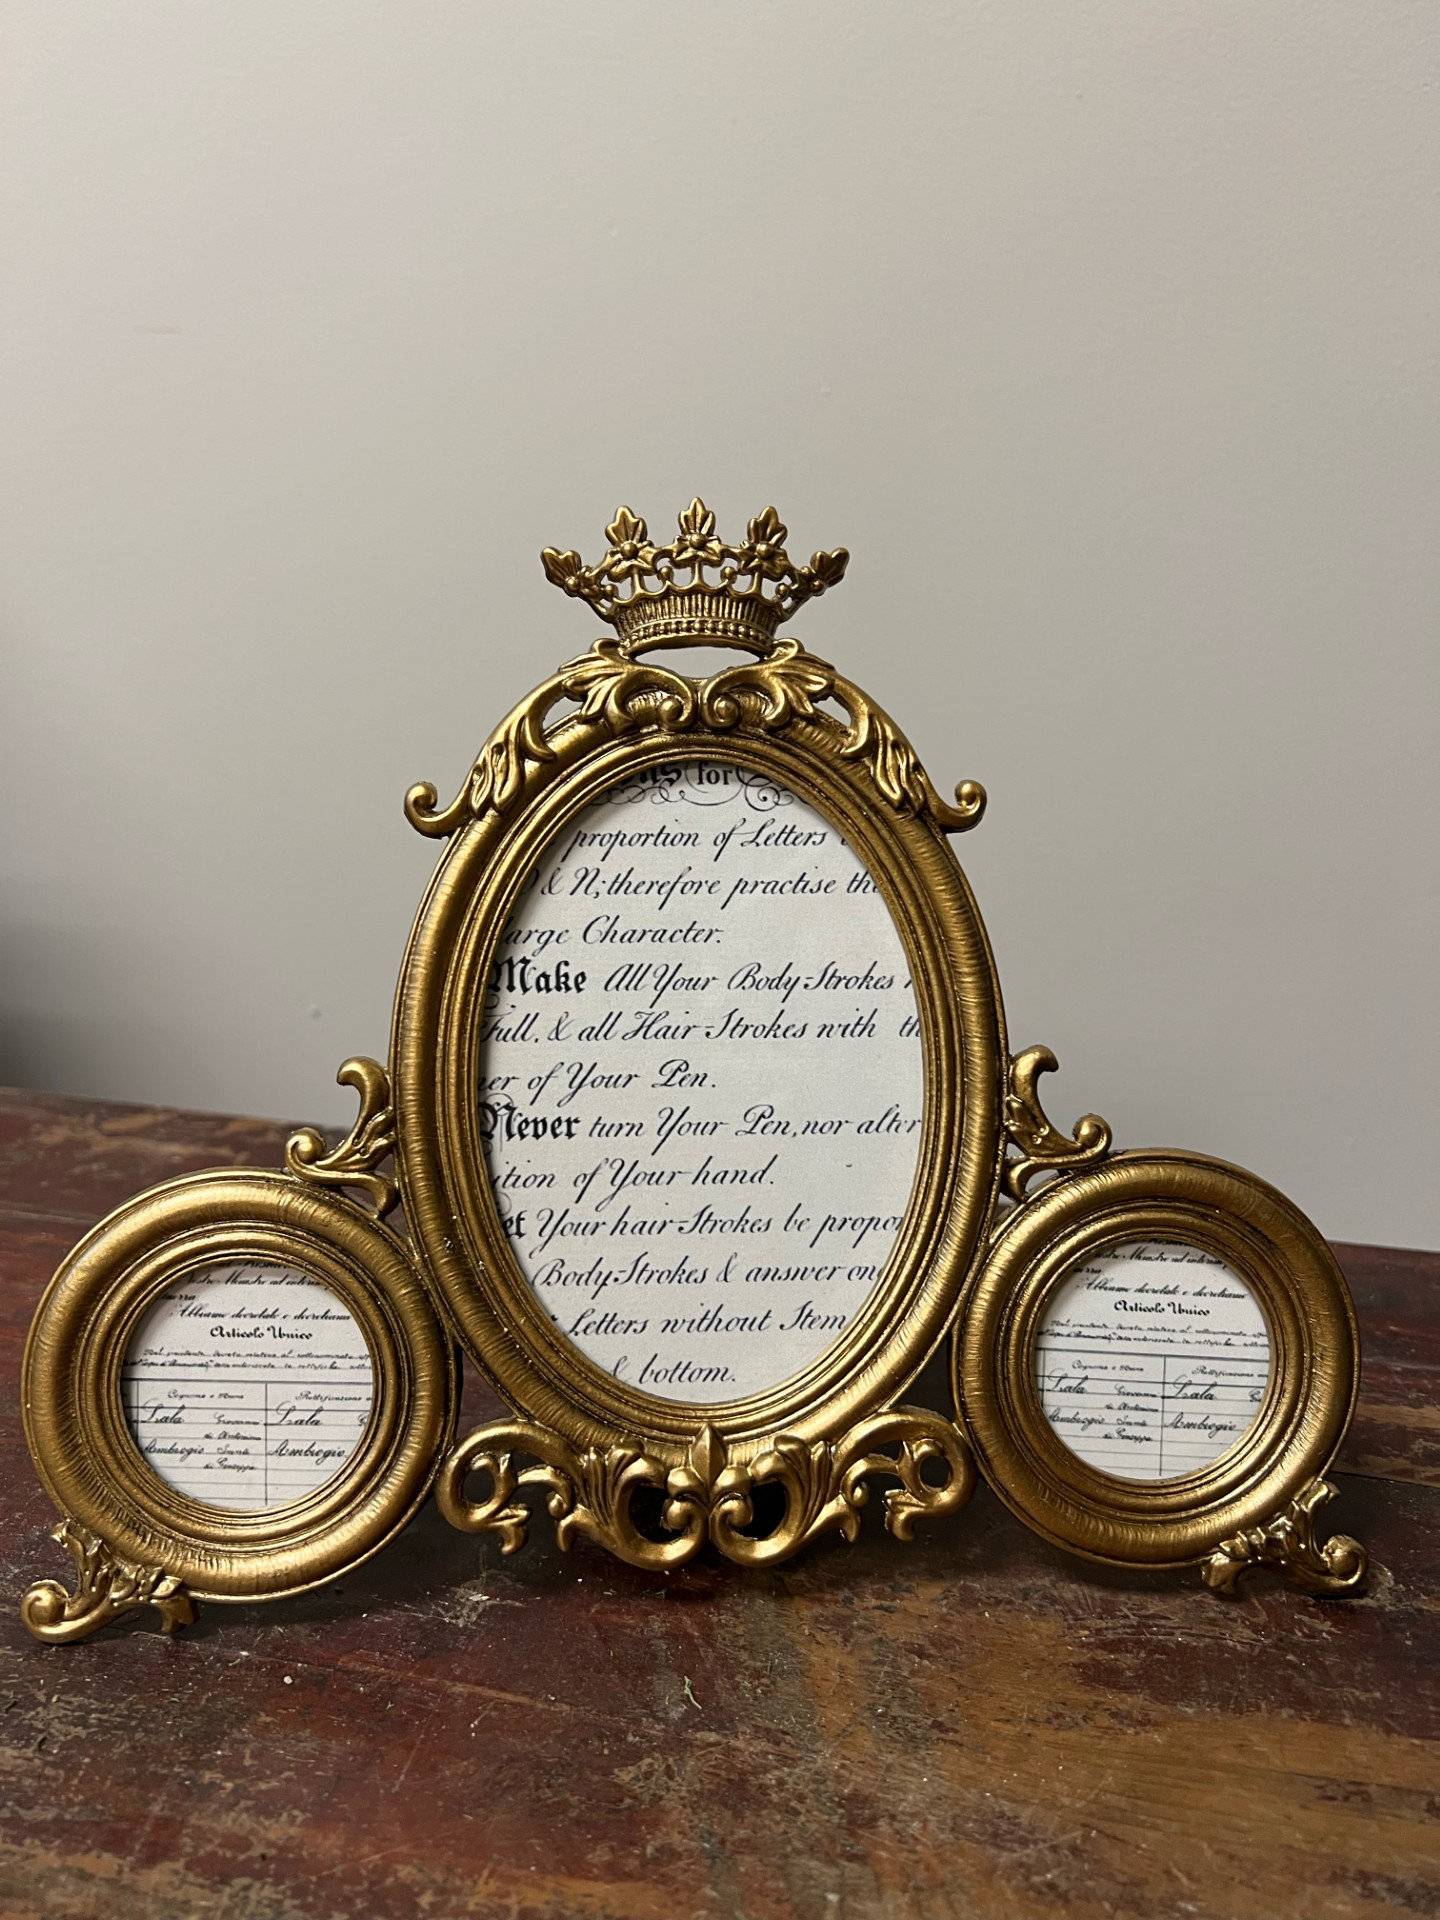 for
proportion of Letters
& N; therefore practise the
large Character.
Make All Your Body-Strokes
Full, & all Hair-Strokes with th
ner of Your Pen.
Never turn Your Pen, nor alter
ition of Your hand.
et Your hair-Strokes be propor
Body-Strokes & answer on
Letters without Item
& bottom.
Abbiamo decretato e decretiamo
Articolo Unico
Cognome e Nome Rettificazione
Lala Giovanni Lala
di Antonino
Ambrogio Ambrogio
di Giuseppe
Abbiamo decretato e decretiamo
Articolo Unico
Cognome e Nome Rettificazione
Lala Giovanni Lala G
di Antonino
Ambrogio Ambrogio
di Giuseppe